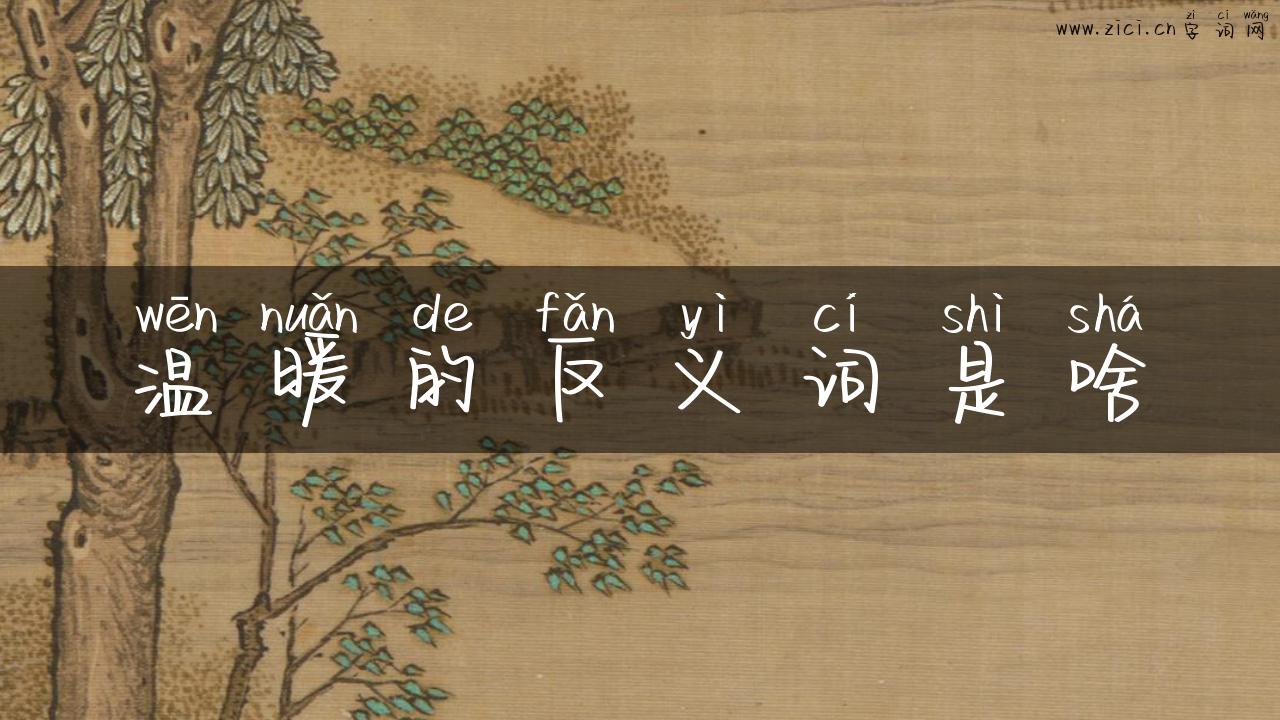 zì cí wǎng
www.zici.cn 字词网
wēn nuǎn de fǎn yì cí shì shá
温暖的反义词是啥